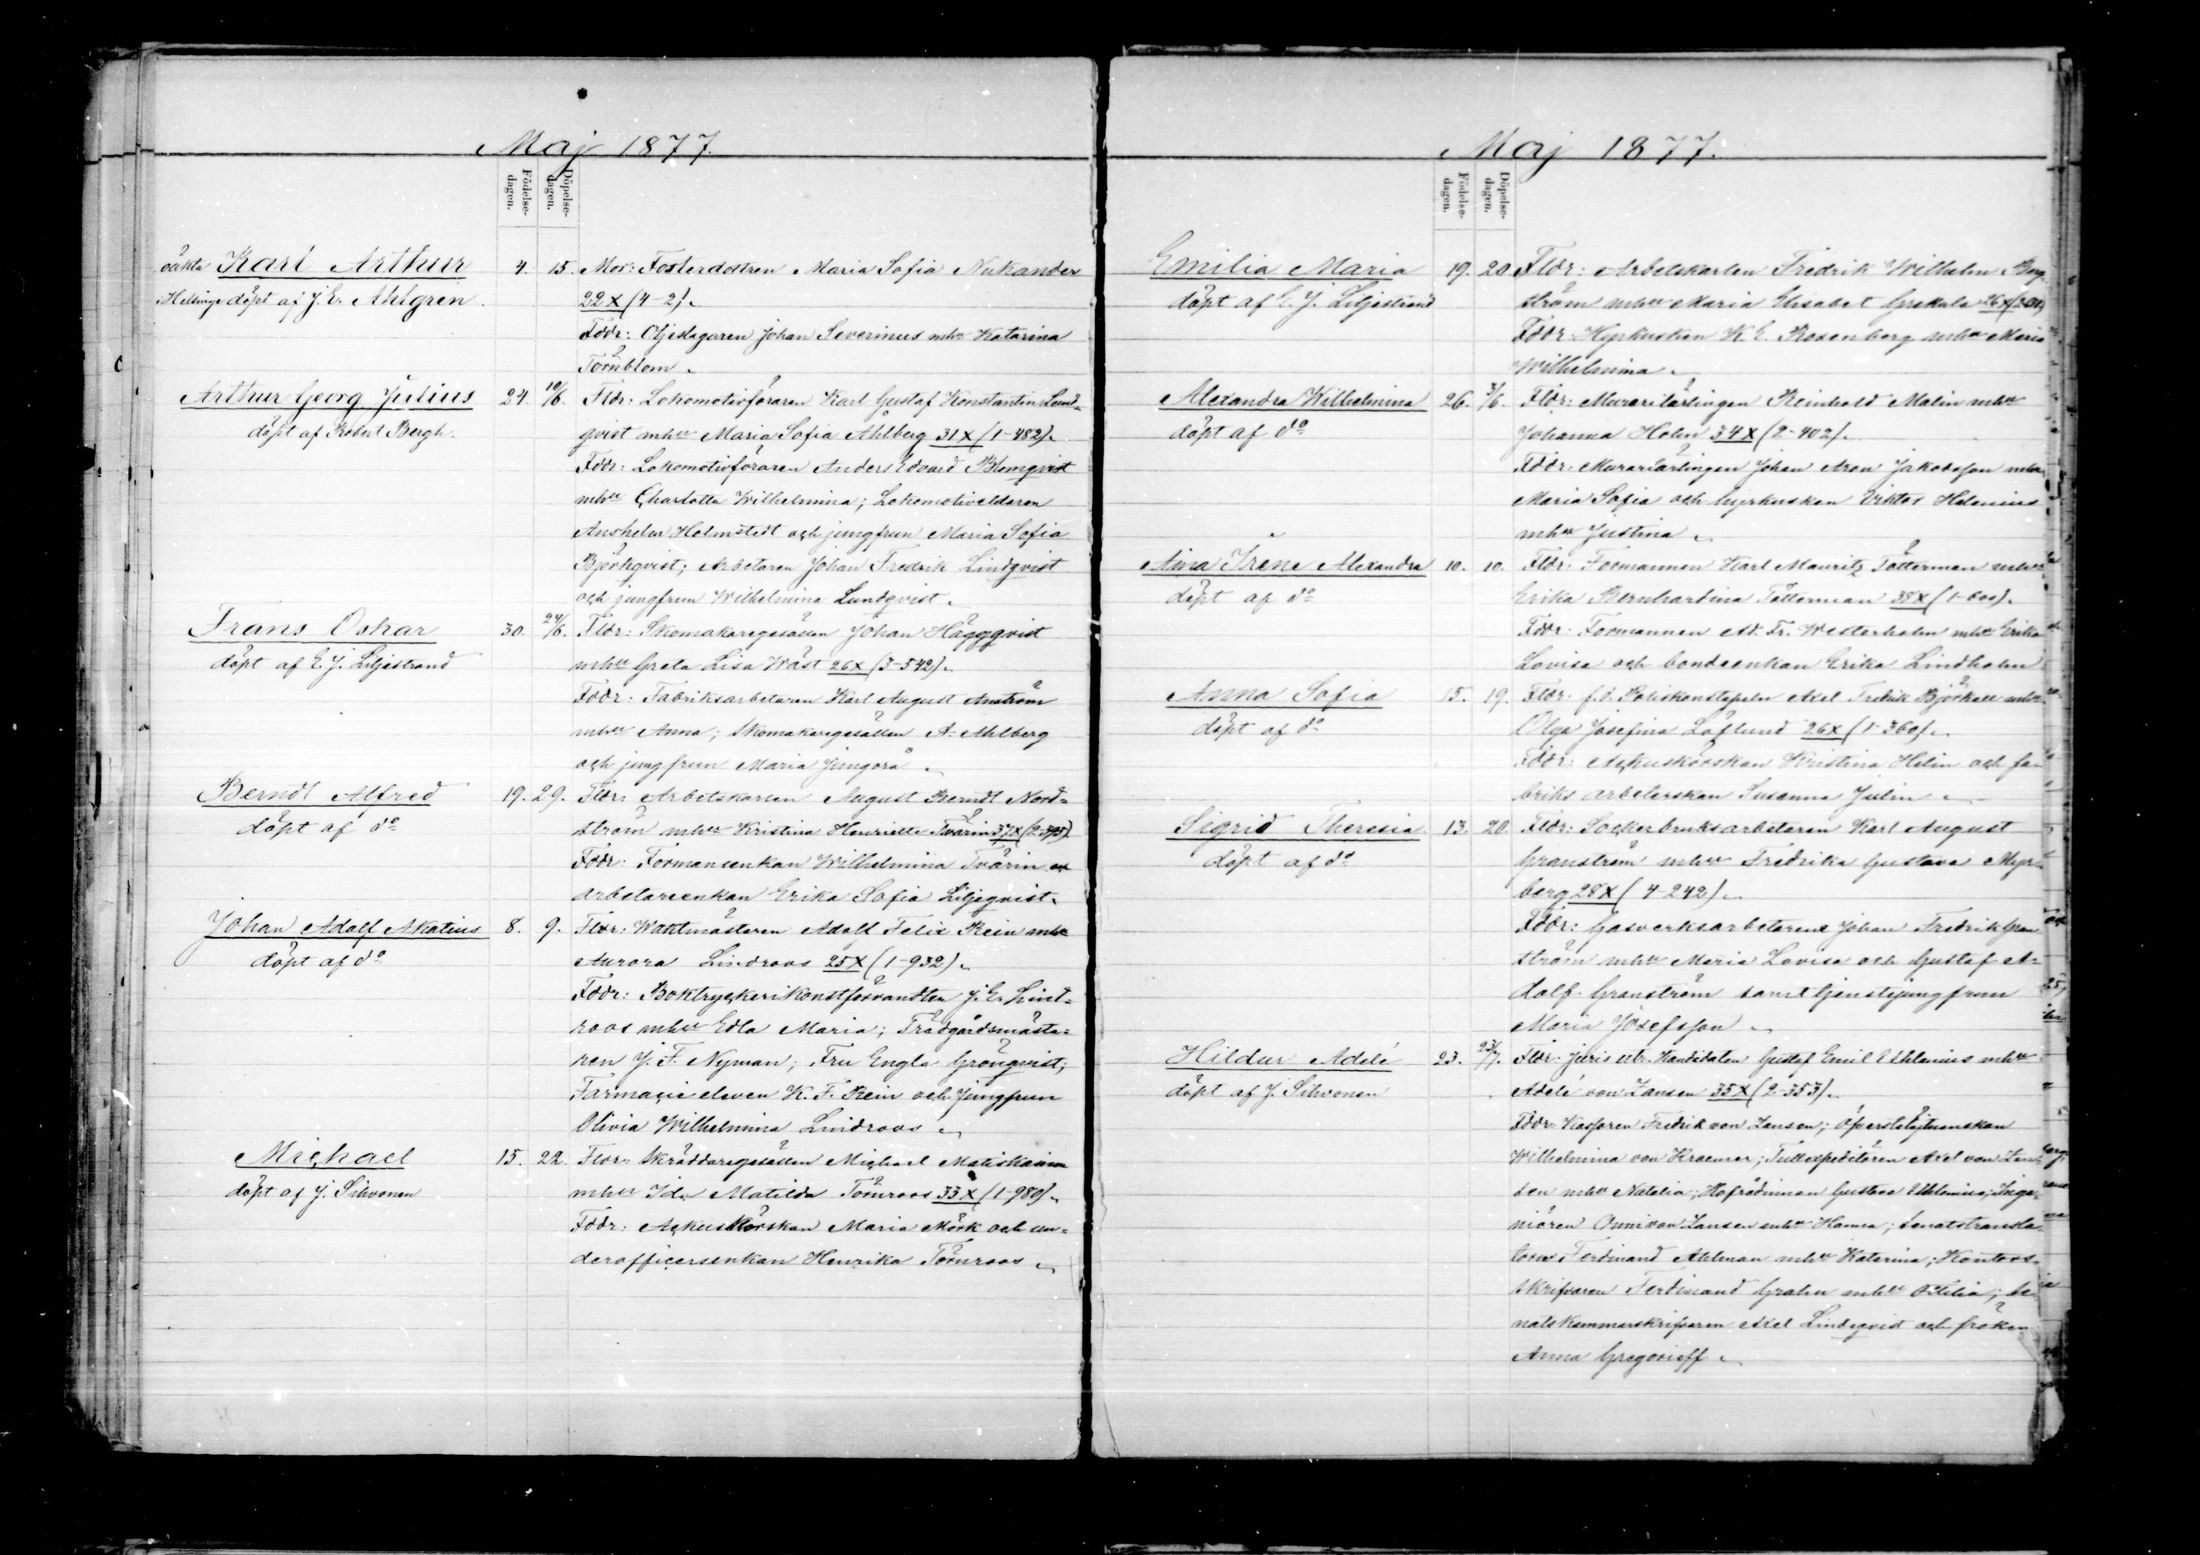 Maj 1877.
Födelse-
dagen.
Döpelse-
dagen.
oäkta Karl Arthur 4. 15. Mor: Fosterdottren Maria Sofia Nukander
Helsinge döpt af J. E. Ahlgren. 22 X (4-2).
Fddr: Oljeslagaren Johan Severinus mhu Katarina
Törnblom.
Arthur Georg Julius 24. 10/6. Fldr: Lokomotivföraren Karl Gustaf Konstantin Lund-
döpt af Robert Bergh. qvist mhu Maria Sofia Ahlberg 31 X (1-482).
Fddr: Lokomotivföraren Anders Edvard Blomqvist
mhu Charlotta Wilhelmina; Lokomotiveldaren
Anshelm Holmstedt och jungfrun Maria Sofia
Björkqvist; Arbetaren Johan Fredrik Lindqvist
och jungfrun Wilhelmina Lundqvist.
Frans Oskar 30. 24/6. Fldr: Skomakaregesällen Johan Häggqvist
döpt af E. J. Liljestrand mhu Greta Lisa Wäst 26 X (3-542).
Fddr: Fabriksarbetaren Karl August Anström
mhu Anna; skomakaregesällen A. Ahlberg
och jungfrun Maria Jungorå.
Berndt Alfred 19. 29. Fldr: Arbetskarlen August Berndt Nord-
döpt af do ström mhu Kristina Henriette Tvärin 37 X
Fddr: Formansenkan Wilhelmina Tvärin
arbetareenkan Erika Sofia Liljeqvist.
Johan Adolf Akatius 8. 9. Fldr: Waktmästaren Adolf Felix Rein mhu
döpt af do Aurora Lindroos 25 X (1-932).
Fddr: Boktryckerikonstförvandten J. E. Lind-
roos mhu Edla Maria; Trädgårdsmästa-
ren J. F. Nyman; Fru Engla Grönqvist;
Farmacie eleven K. F. Rein och Jungfrun
Olivia Wilhelmina Lindroos.
Michael 15. 22. Fldr: Skräddaregesällen Michael Matiskainen
döpt af J. Sihvonen mhu Ida Matilda Törnroos 33 X (1-980).
Fddr: Ackuskörskan Maria Mörk och un-
derofficersenkan Henrika Törnroos.
Maj 1877.
Födelse-
dagen.
Döpelse-
dagen.
Emilia Maria 19. 20. Fldr: Arbetskarlen Fredrik Wilhelm Berg-
döpt af E. J. Liljestrand ström mhu Maria Elisabet Grekula 26 X
Fddr: Hyrkusken K. E. Rosenberg mhu Maria
Wilhelmina.
Alexandra Wilhelmina 26. 3/6. Fldr: Murarilärlingen Reinhold Malin mhu
döpt af do Johanna Holm 34 X (2-402).
Fddr: Murarilärlingen Johan Aron Jakobsson mhu
Maria Sofia och hyrkusken Viktor Helenius
mhu Justina.
Aina Irene Alexandra 10. 10. Fldr: Formannen Karl Mauritz Tötterman mhu
döpt af do Erika Bernhardina Tötterman 38 X (1-600).
Fddr: Formannen Ad. Fr. Westerholm mhu Erika
Lovisa och bondeenkan Erika Lindholm
Anna Sofia 15. 19. Fldr: f.d. Poliskonstapeln Axel Fredrik Björkell mhu
döpt af do Olga Josefina Löflund 26 X (1-360).
Fddr: Ackuskörskan Kristina Helin och fa-
briks arbeterskan Susanna Julin.
Sigrid Theresia 13. 20. Fldr: Sockerbruksarbetaren Karl August
döpt af do Granström mhu Fredrika Gustava Myr-
berg 28 X (4-242).
Fddr: Gasverksarbetarene Johan Fredrik Gran
ström mhu Maria Lovisa och Gustaf A-
dolf Granström samt tjenstejungfrun
Maria Josefsson.
Hildur Adelé 23. 23/7. Fldr: Juris utr. Kandidaten Gustaf Emil Uhlenius mhu
döpt af J. Sihvonen Adelé von Zansen 35 X (2-353).
Fddr: Kassören Fredrik von Zansen; Öfverstelöjtnanskan
Wilhelmina von Kraemer; Tullexpeditören Axel von Zan-
sen mhu Natalia; Hofrådinnan Gustava Uhlenius; Inge-
niören Onni von Zansen mhu Hanna; Senatstransla-
torn Ferdinand Ahlman mhu Katarina; Kontors-
skrifvaren Ferdinand Grahn mhu Otilia; Se-
natskammarskrifvaren Axel Lindqvist och fröken
Anna Gregorieff.